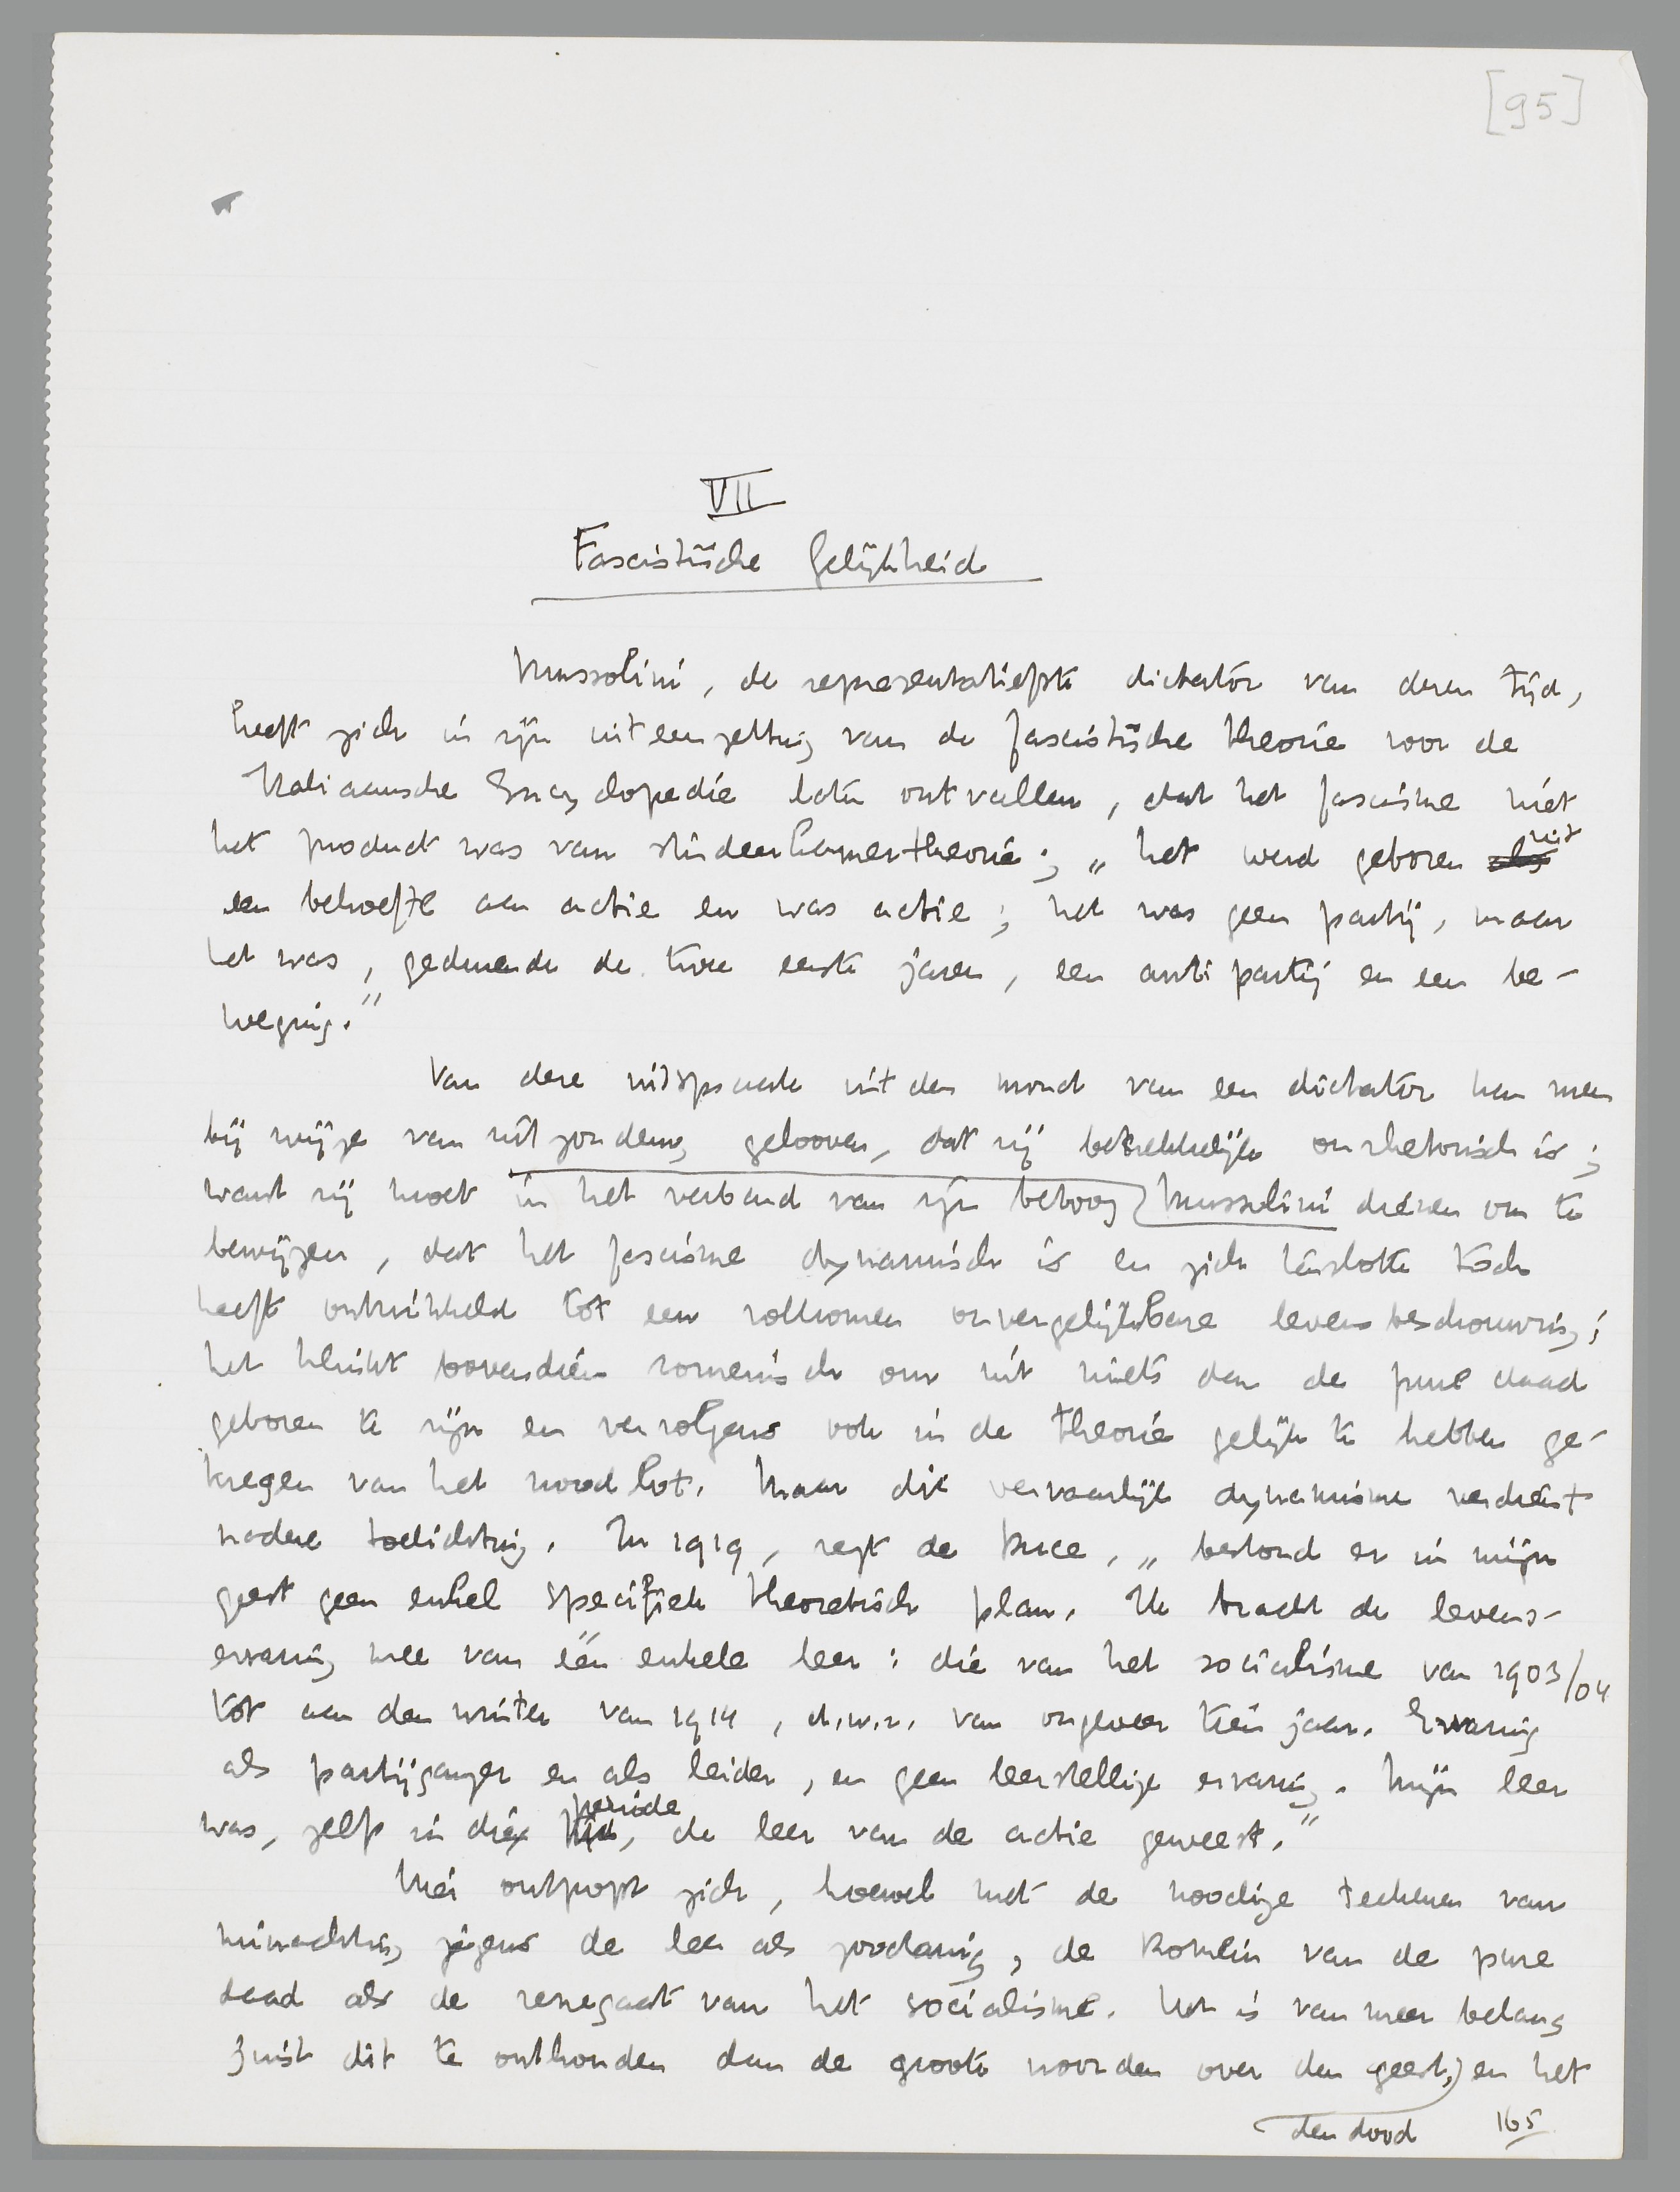 [95]
VII
Fascistische Gelijkheid
Mussolini, de representatiefste dictator van dezen tijd,
heeft zich in zijn uiteenzetting van de fascistische theorie voor de
Italiaansche Encyclopedie laten ontvallen, dat het fascisme niet
het product was van studeerkamertheorie; „het werd geboren als uit
een behoefte aan actie en was actie; het was geen partij, maar
het was, gedurende de twee eerste jaren, een antipartij en een be-
weging.”
Van deze uitspraak uit den mond van een dictator kan men
bij wijze van uitzondering gelooven, dat zij betrekkelijk onrhetorisch is;
want zij moet in het verband van zijn betoog Mussolini dienen om te
bewijzen, dat het fascisme dynamisch is en zich tenslotte toch
heeft ontwikkeld tot een volkomen onvergelijkbare levensbeschouwing;
het klinkt bovendien romeinsch om uit niets dan de pure daad
geboren te zijn en vervolgens ook in de theorie gelijk te hebben ge-
kregen van het noodlot. Maar dit vervaarlijk dynamisme verdient
nadere toelichting. In 1919, zegt de Duce, „bestond er in mijn
geest geen enkel specifiek theoretisch plan. Ik bracht de levens-
ervaring mee van één enkele leer: die van het socialisme van 1903/04
tot aan den winter van 1914, d.w.z. van ongeveer tien jaar. Ervaring
als partijganger en als leider, en geen leerstellige ervaring. Mijn leer
was, zelfs in die tijd, periode de leer van de actie geweest.”
Hier ontpopt zich, hoewel met de noodige teekenen van
minachting jegens de leer als zoodanig, de Romein van de pure
daad als de renegaat van het socialisme. Het is van meer belang
juist dit te onthouden dan de groote woorden over den geest, en het
den dood
165